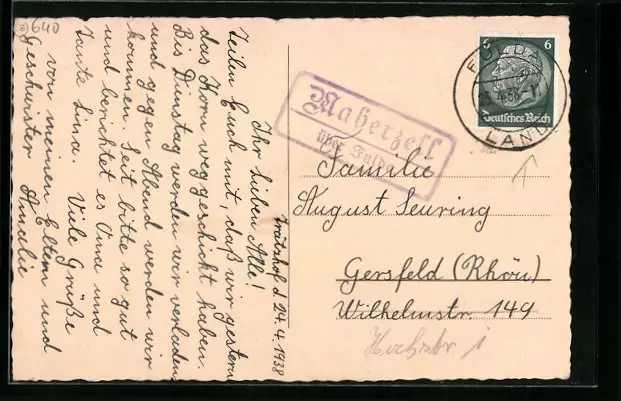 640
Trätzhof d. 24.4.1938
Ihr lieben Alle!
Teilen Euch mit, daß wir gestern
das Korn weggeschickt haben.
Bis Dienstag werden wir verladen
und gegen Abend werden wir
kommen. Seit bitte so gut
und berichtet es Oma und
Tante Lina. Viele Grüße
von meinen Eltern und
Geschwister Amelie
Maberzell
über Fulda
FULDA
LAND
6 6
Deutsches Reich
Familie
August Seuring
Gersfeld (Rhön)
Wilhelmstr. 149